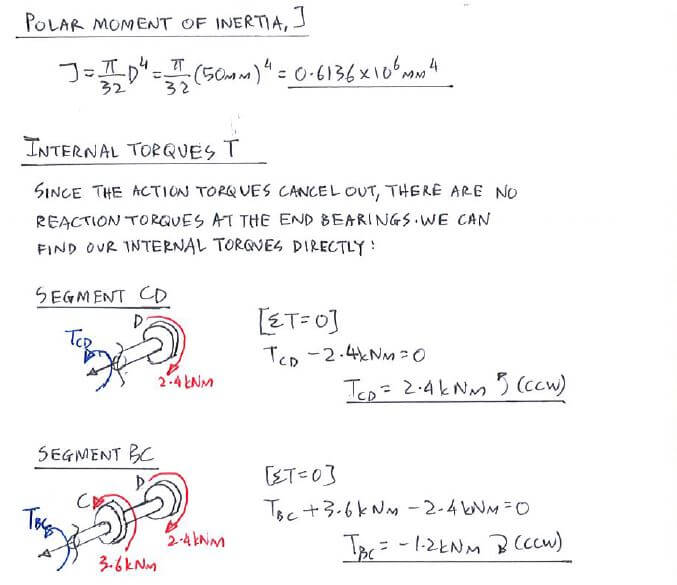 POLAR MOMENT OF INERTIA, J
J = π/32 D⁴ = π/32 (50mm)⁴ = 0.6136 x 10⁶ mm⁴
INTERNAL TORQUES T
SINCE THE ACTION TORQUES CANCEL OUT, THERE ARE NO
REACTION TORQUES AT THE END BEARINGS. WE CAN
FIND OUR INTERNAL TORQUES DIRECTLY:
SEGMENT CD
D
T_CD
2.4 kNm
[ΣT=0]
T_CD - 2.4kNm = 0
T_CD = 2.4 kNm (CCW)
SEGMENT BC
D
C
T_BC
2.4 kNm
3.6 kNm
[ΣT=0]
T_BC + 3.6 kNm - 2.4 kNm = 0
T_BC = -1.2 kNm (CCW)